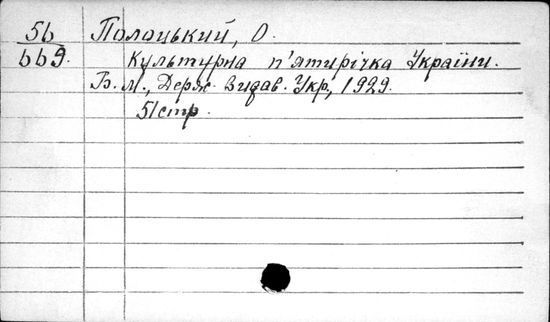 56 Полоцький, О.
669. Культурна п'ятирічка України.
Б.М., Держ. Видав. Укр., 1929.
51 стр.